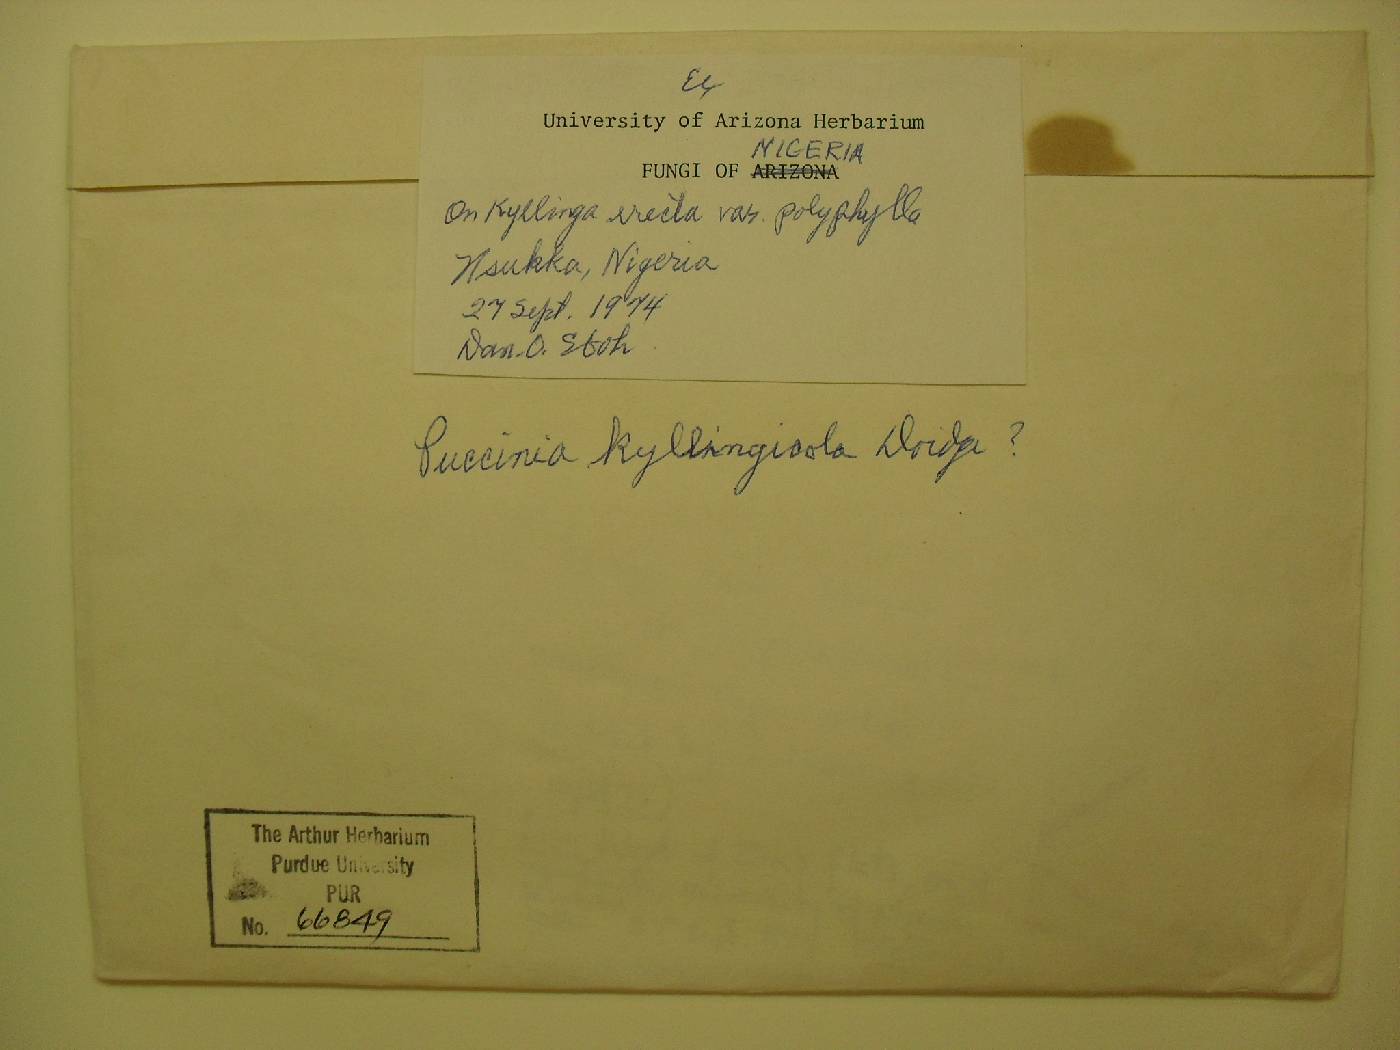 Ex
University of Arizona Herbarium
NIGERIA
FUNGI OF ARIZONA
On Kyllinga erecta var. polyphylla
Nsukka, Nigeria
27 Sept. 1974
Dan. O. Eboh
Puccinia kyllingicola Doidge ?
The Arthur Herbarium
Purdue University
PUR
No. 66849